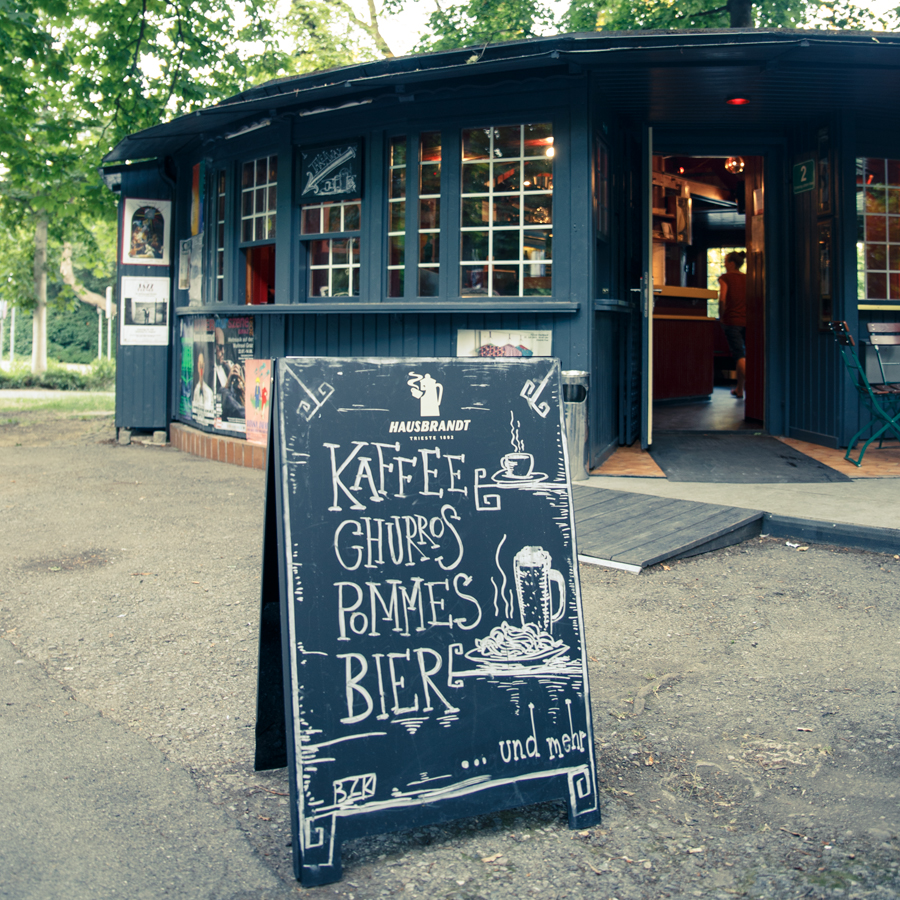 JAZZ
2
HAUSBRANDT
TRIESTE 1892
KAFFEE
CHURROS
POMMES
BIER
... und mehr
BZK